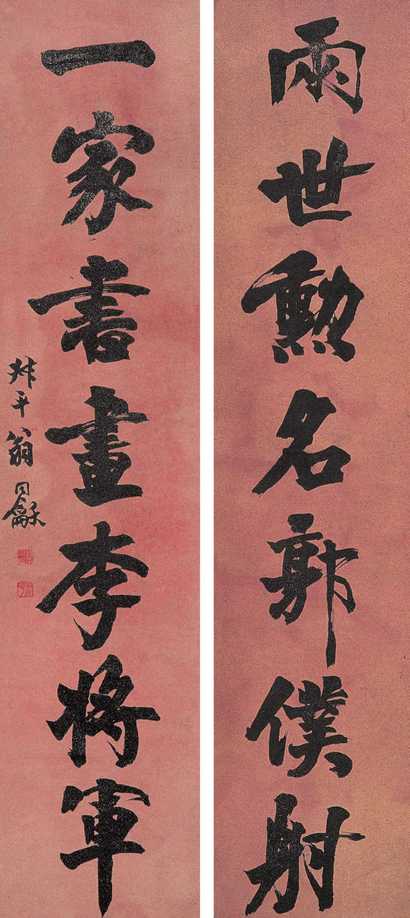 兩世勲名郭僕射
一家書畫李將軍
叔平翁同龢